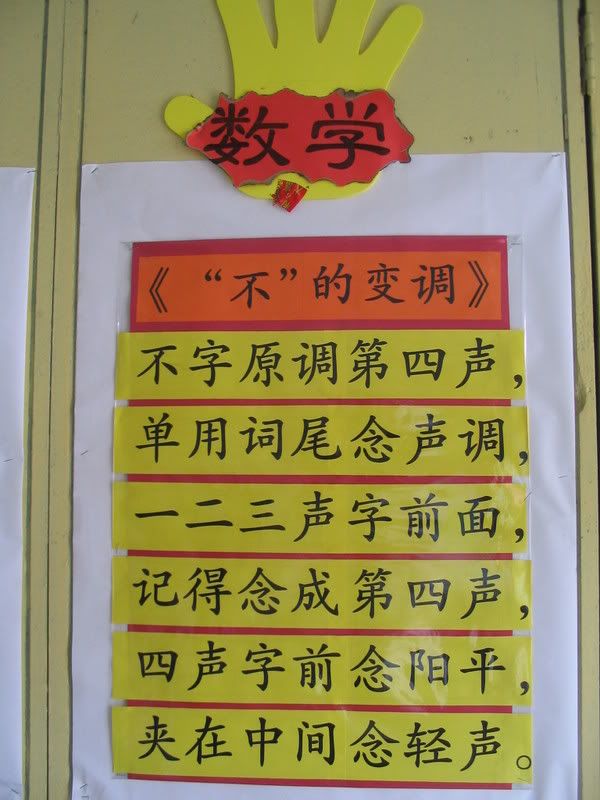 数学
《“不”的变调》
不字原调第四声，
单用词尾念声调，
一二三声字前面，
记得念成第四声，
四声字前念阳平，
夹在中间念轻声。